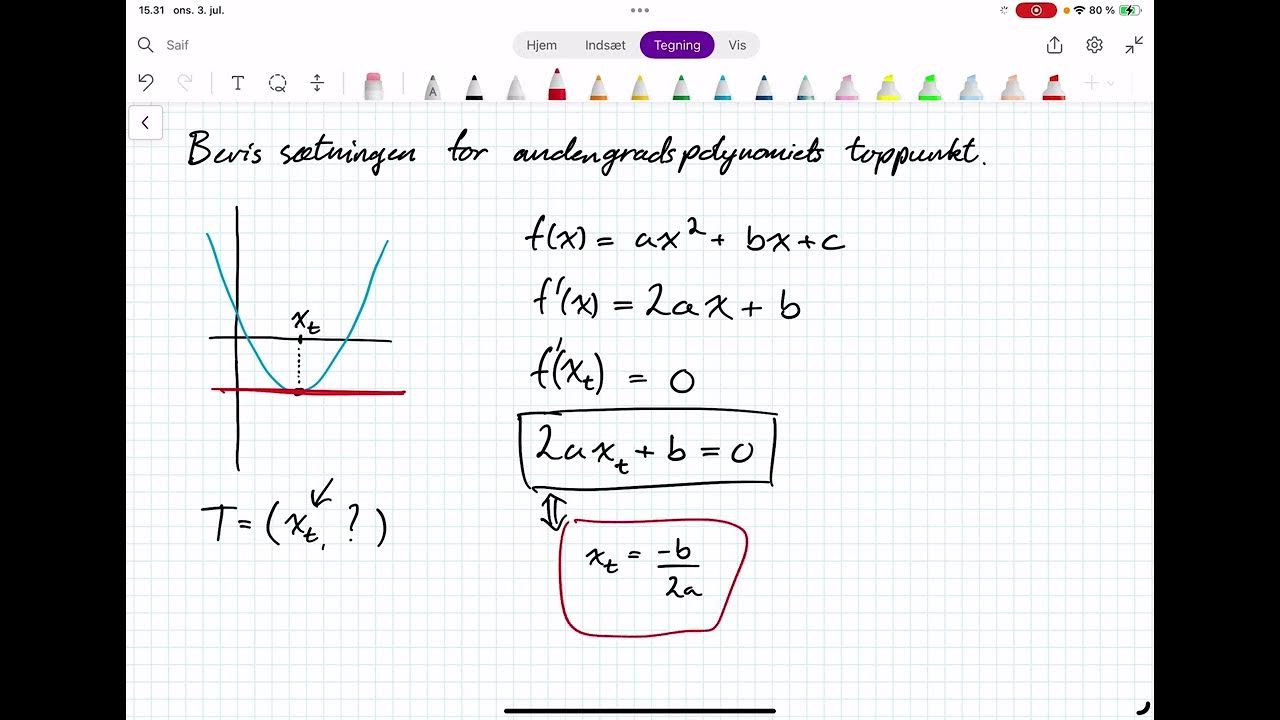 15.31 ons. 3. jul.
80 %
Saif
Hjem Indsæt Tegning Vis
T
A
Bevis sætningen for andengradspolynomiets toppunkt.
f(x) = ax² + bx + c
f'(x) = 2ax + b
xₜ
f'(xₜ) = 0
2axₜ + b = 0
⇕
T = (xₜ, ?)
xₜ = -b/2a